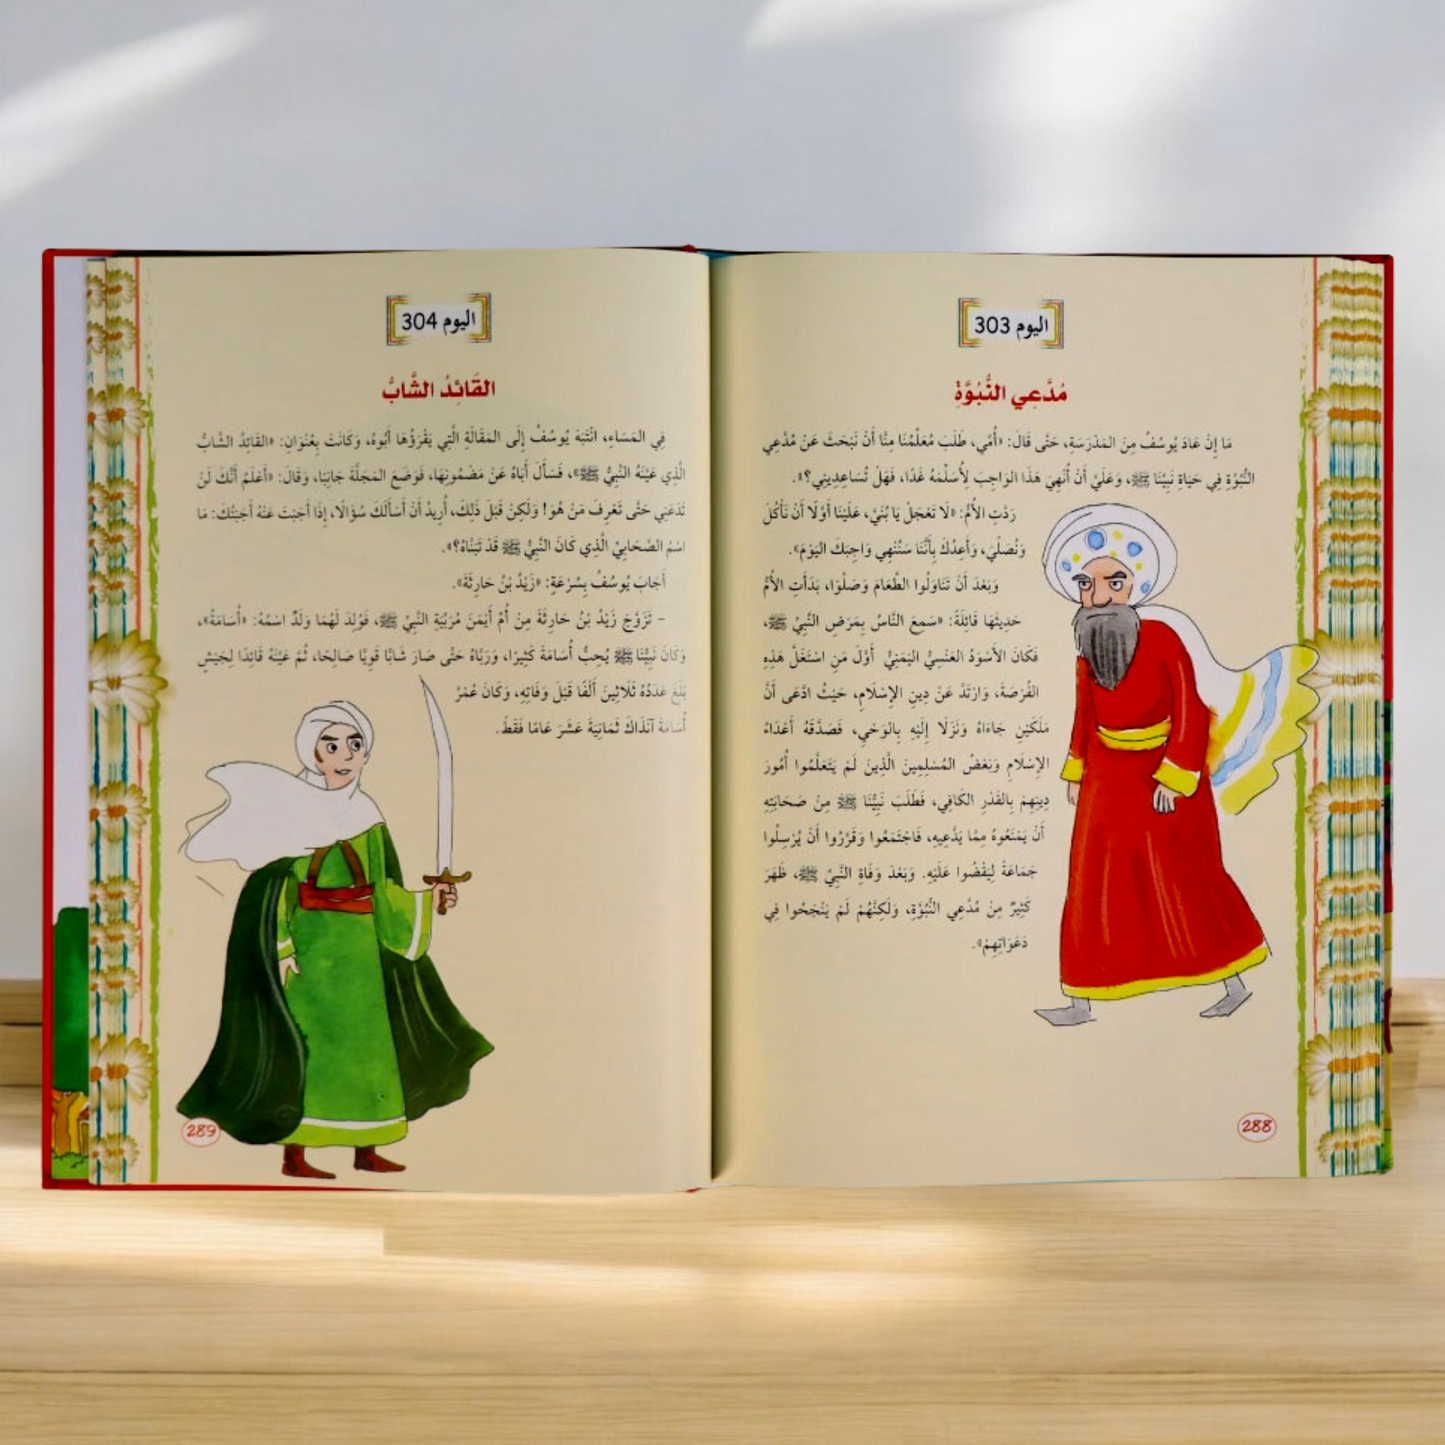 اليوم 303
مُدَّعِي النُّبُوَّةِ
مَا إِنْ عَادَ يُوسُفُ مِنَ المَدْرَسَةِ، حَتَّى قَالَ: «أُمِّي، طَلَبَ مُعَلِّمُنَا مِنَّا أَنْ نَبْحَثَ عَنْ مُدَّعِي
النُّبُوَّةِ فِي حَيَاةِ نَبِيِّنَا ﷺ، وَعَلَيَّ أَنْ أُنْهِيَ هَذَا الوَاجِبَ لِأُسَلِّمَهُ غَدًا، فَهَلْ تُسَاعِدِينِي؟».
رَدَّتِ الأُمُّ: «لَا تَعْجَلْ يَا بُنَيَّ، عَلَيْنَا أَوَّلًا أَنْ نَأْكُلَ
وَنُصَلِّيَ، وَأَعِدُكَ بِأَنَّنَا سَنُنْهِي وَاجِبَكَ اليَوْمَ».
وَبَعْدَ أَنْ تَنَاوَلُوا الطَّعَامَ وَصَلَّوْا، بَدَأَتِ الأُمُّ
حَدِيثَهَا قَائِلَةً: «سَمِعَ النَّاسُ بِمَرَضِ النَّبِيِّ ﷺ،
فَكَانَ الأَسْوَدُ العَنْسِيُّ اليَمَنِيُّ أَوَّلَ مَنِ اسْتَغَلَّ هَذِهِ
الفُرْصَةَ، وَارْتَدَّ عَنْ دِينِ الإِسْلَامِ، حَيْثُ ادَّعَى أَنَّ
مَلَكَيْنِ جَاءَاهُ وَنَزَلَا إِلَيْهِ بِالوَحْيِ، فَصَدَّقَهُ أَعْدَاءُ
الإِسْلَامِ وَبَعْضُ المُسْلِمِينَ الَّذِينَ لَمْ يَتَعَلَّمُوا أُمُورَ
دِينِهِمْ بِالقَدْرِ الكَافِي، فَطَلَبَ نَبِيُّنَا ﷺ مِنْ صَحَابَتِهِ
أَنْ يَمْنَعُوهُ مِمَّا يَدَّعِيهِ، فَاجْتَمَعُوا وَقَرَّرُوا أَنْ يُرْسِلُوا
جَمَاعَةً لِيَقْضُوا عَلَيْهِ. وَبَعْدَ وَفَاةِ النَّبِيِّ ﷺ، ظَهَرَ
كَثِيرٌ مِنْ مُدَّعِي النُّبُوَّةِ، وَلَكِنَّهُمْ لَمْ يَنْجَحُوا فِي
دَعَوَاتِهِمْ».
288
اليوم 304
القَائِدُ الشَّابُّ
فِي المَسَاءِ، انْتَبَهَ يُوسُفُ إِلَى المَقَالَةِ الَّتِي يَقْرَؤُهَا أَبُوهُ، وَكَانَتْ بِعُنْوَانِ: «القَائِدُ الشَّابُّ
الَّذِي عَيَّنَهُ النَّبِيُّ ﷺ»، فَسَأَلَ أَبَاهُ عَنْ مَضْمُونِهَا، فَوَضَعَ المَجَلَّةَ جَانِبًا، وَقَالَ: «أَعْلَمُ أَنَّكَ لَنْ
تَدَعَنِي حَتَّى تَعْرِفَ مَنْ هُوَ! وَلَكِنْ قَبْلَ ذَلِكَ، أُرِيدُ أَنْ أَسْأَلَكَ سُؤَالًا، إِذَا أَجَبْتَ عَنْهُ أَجَبْتُكَ: مَا
اسْمُ الصَّحَابِيِّ الَّذِي كَانَ النَّبِيُّ ﷺ قَدْ تَبَنَّاهُ؟».
أَجَابَ يُوسُفُ بِسُرْعَةٍ: «زَيْدُ بْنُ حَارِثَةَ».
- تَزَوَّجَ زَيْدُ بْنُ حَارِثَةَ مِنْ أُمِّ أَيْمَنَ مُرَبِّيَةِ النَّبِيِّ ﷺ، فَوُلِدَ لَهُمَا وَلَدٌ اسْمُهُ: «أُسَامَةُ»،
وَكَانَ نَبِيُّنَا ﷺ يُحِبُّ أُسَامَةَ كَثِيرًا، وَرَبَّاهُ حَتَّى صَارَ شَابًّا قَوِيًّا صَالِحًا، ثُمَّ عَيَّنَهُ قَائِدًا لِجَيْشٍ
بَلَغَ عَدَدُهُ ثَلَاثِينَ أَلْفًا قَبْلَ وَفَاتِهِ، وَكَانَ عُمْرُ
أُسَامَةَ آنَذَاكَ ثَمَانِيَةَ عَشَرَ عَامًا فَقَطْ.
289